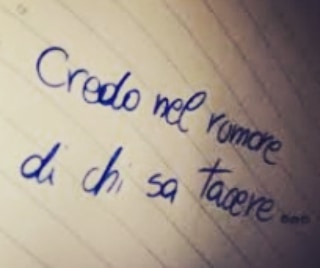 Credo nel rumore
di chi sa tacere...